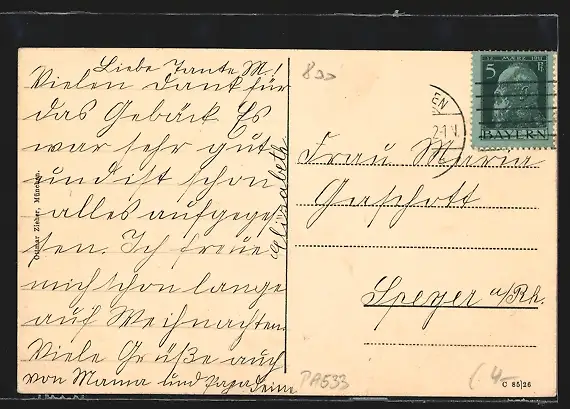 Liebe Tante M!
Vielen Dank für
das Gebäck. Es
war sehr gut
und ist schon
alles aufgeges-
sen. Ich freue
mich schon lange
auf Weihnachten.
Viele Grüße auch
von Mama und Papa Deine
Elisabeth
Ottmar Zieher, München.
800
EN
2-1 N.
12. MÄRZ 1911
5 Pf
BAYERN
Frau Maria
Gerschott
Speyer a/Rh.
PA533
(4—
C 85/26